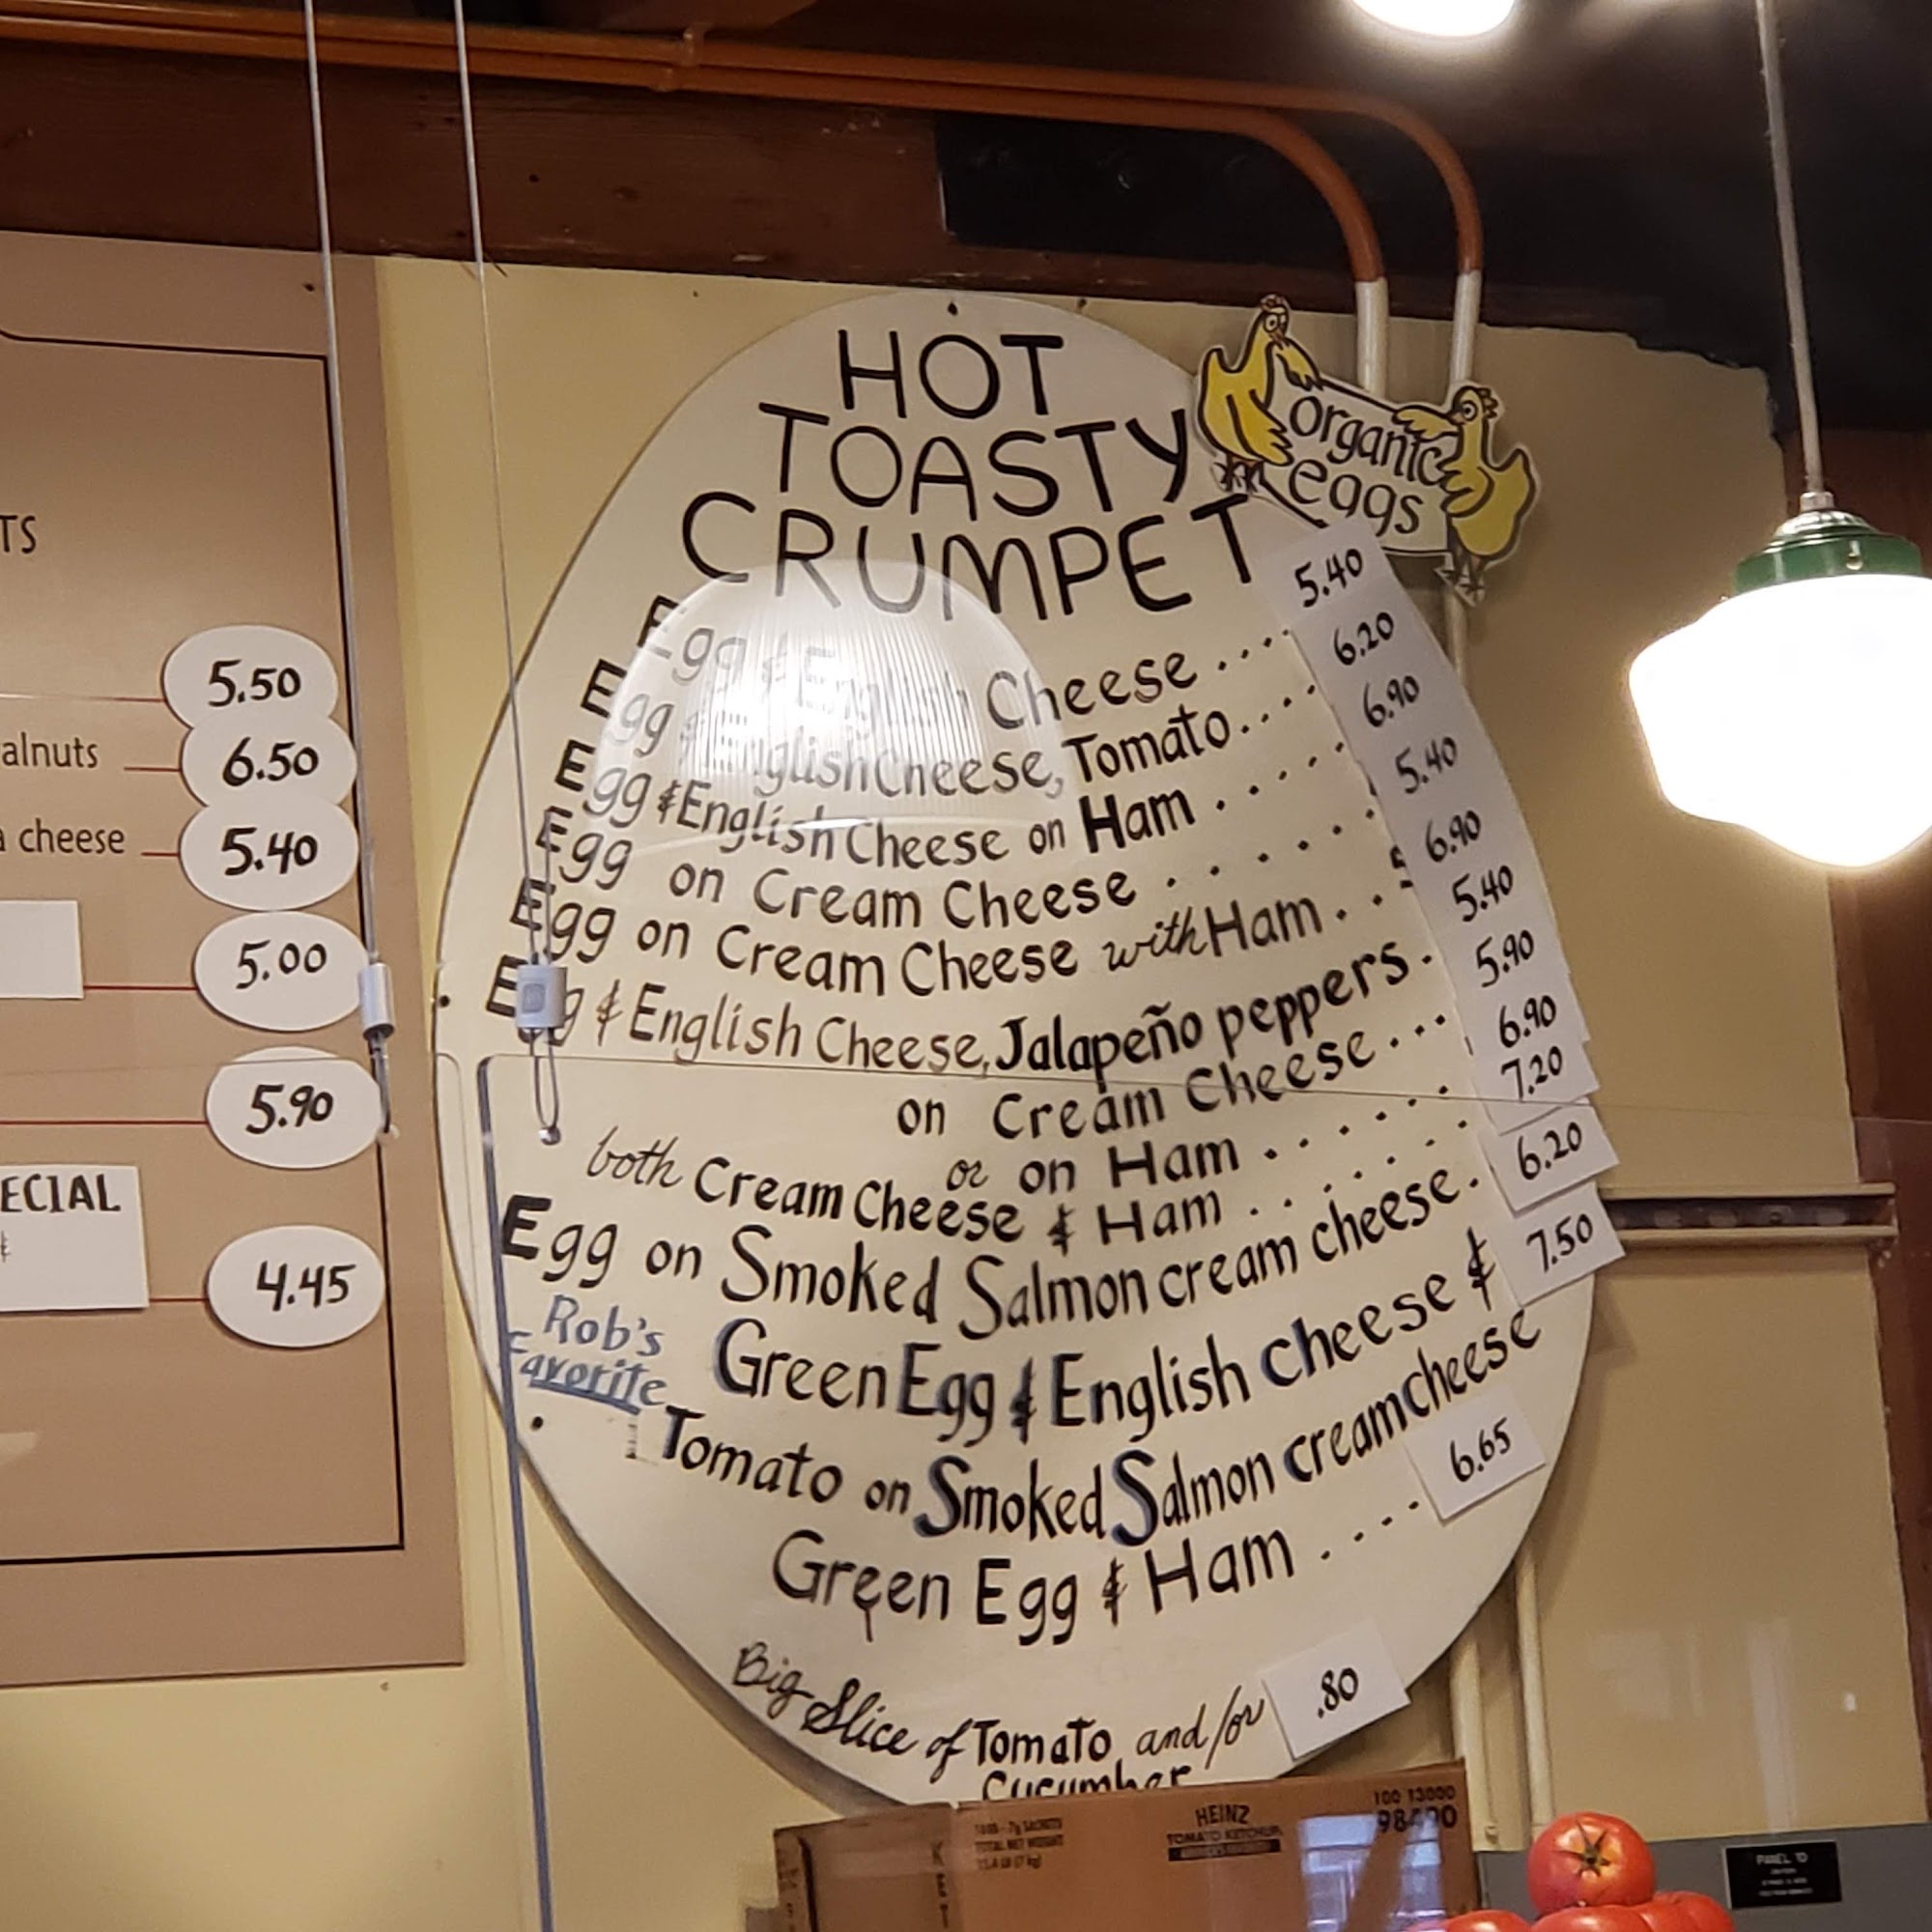 TS
5.50
alnuts 6.50
a cheese 5.40
5.00
5.90
ECIAL
4.45
HOT
TOASTY
CRUMPET
organic
eggs
Egg & English Cheese.... 5.40
Egg & English Cheese, Tomato.... 6.20
Egg & English Cheese on Ham..... 6.90
Egg on Cream Cheese...... 5.40
Egg on Cream Cheese with Ham.. 6.90
Egg & English Cheese, Jalapeño peppers. 5.40
on Cream Cheese... 5.90
or on Ham...... 6.90
both Cream Cheese & Ham...... 7.20
Egg on Smoked Salmon cream cheese. 6.20
Rob's
Favorite
Green Egg & English cheese & 7.50
Tomato on Smoked Salmon cream cheese
Green Egg & Ham.... 6.65
Big Slice of Tomato and/or .80
Cucumber
HEINZ
TOMATO KETCHUP
TOTAL NET WEIGHT
100 13000